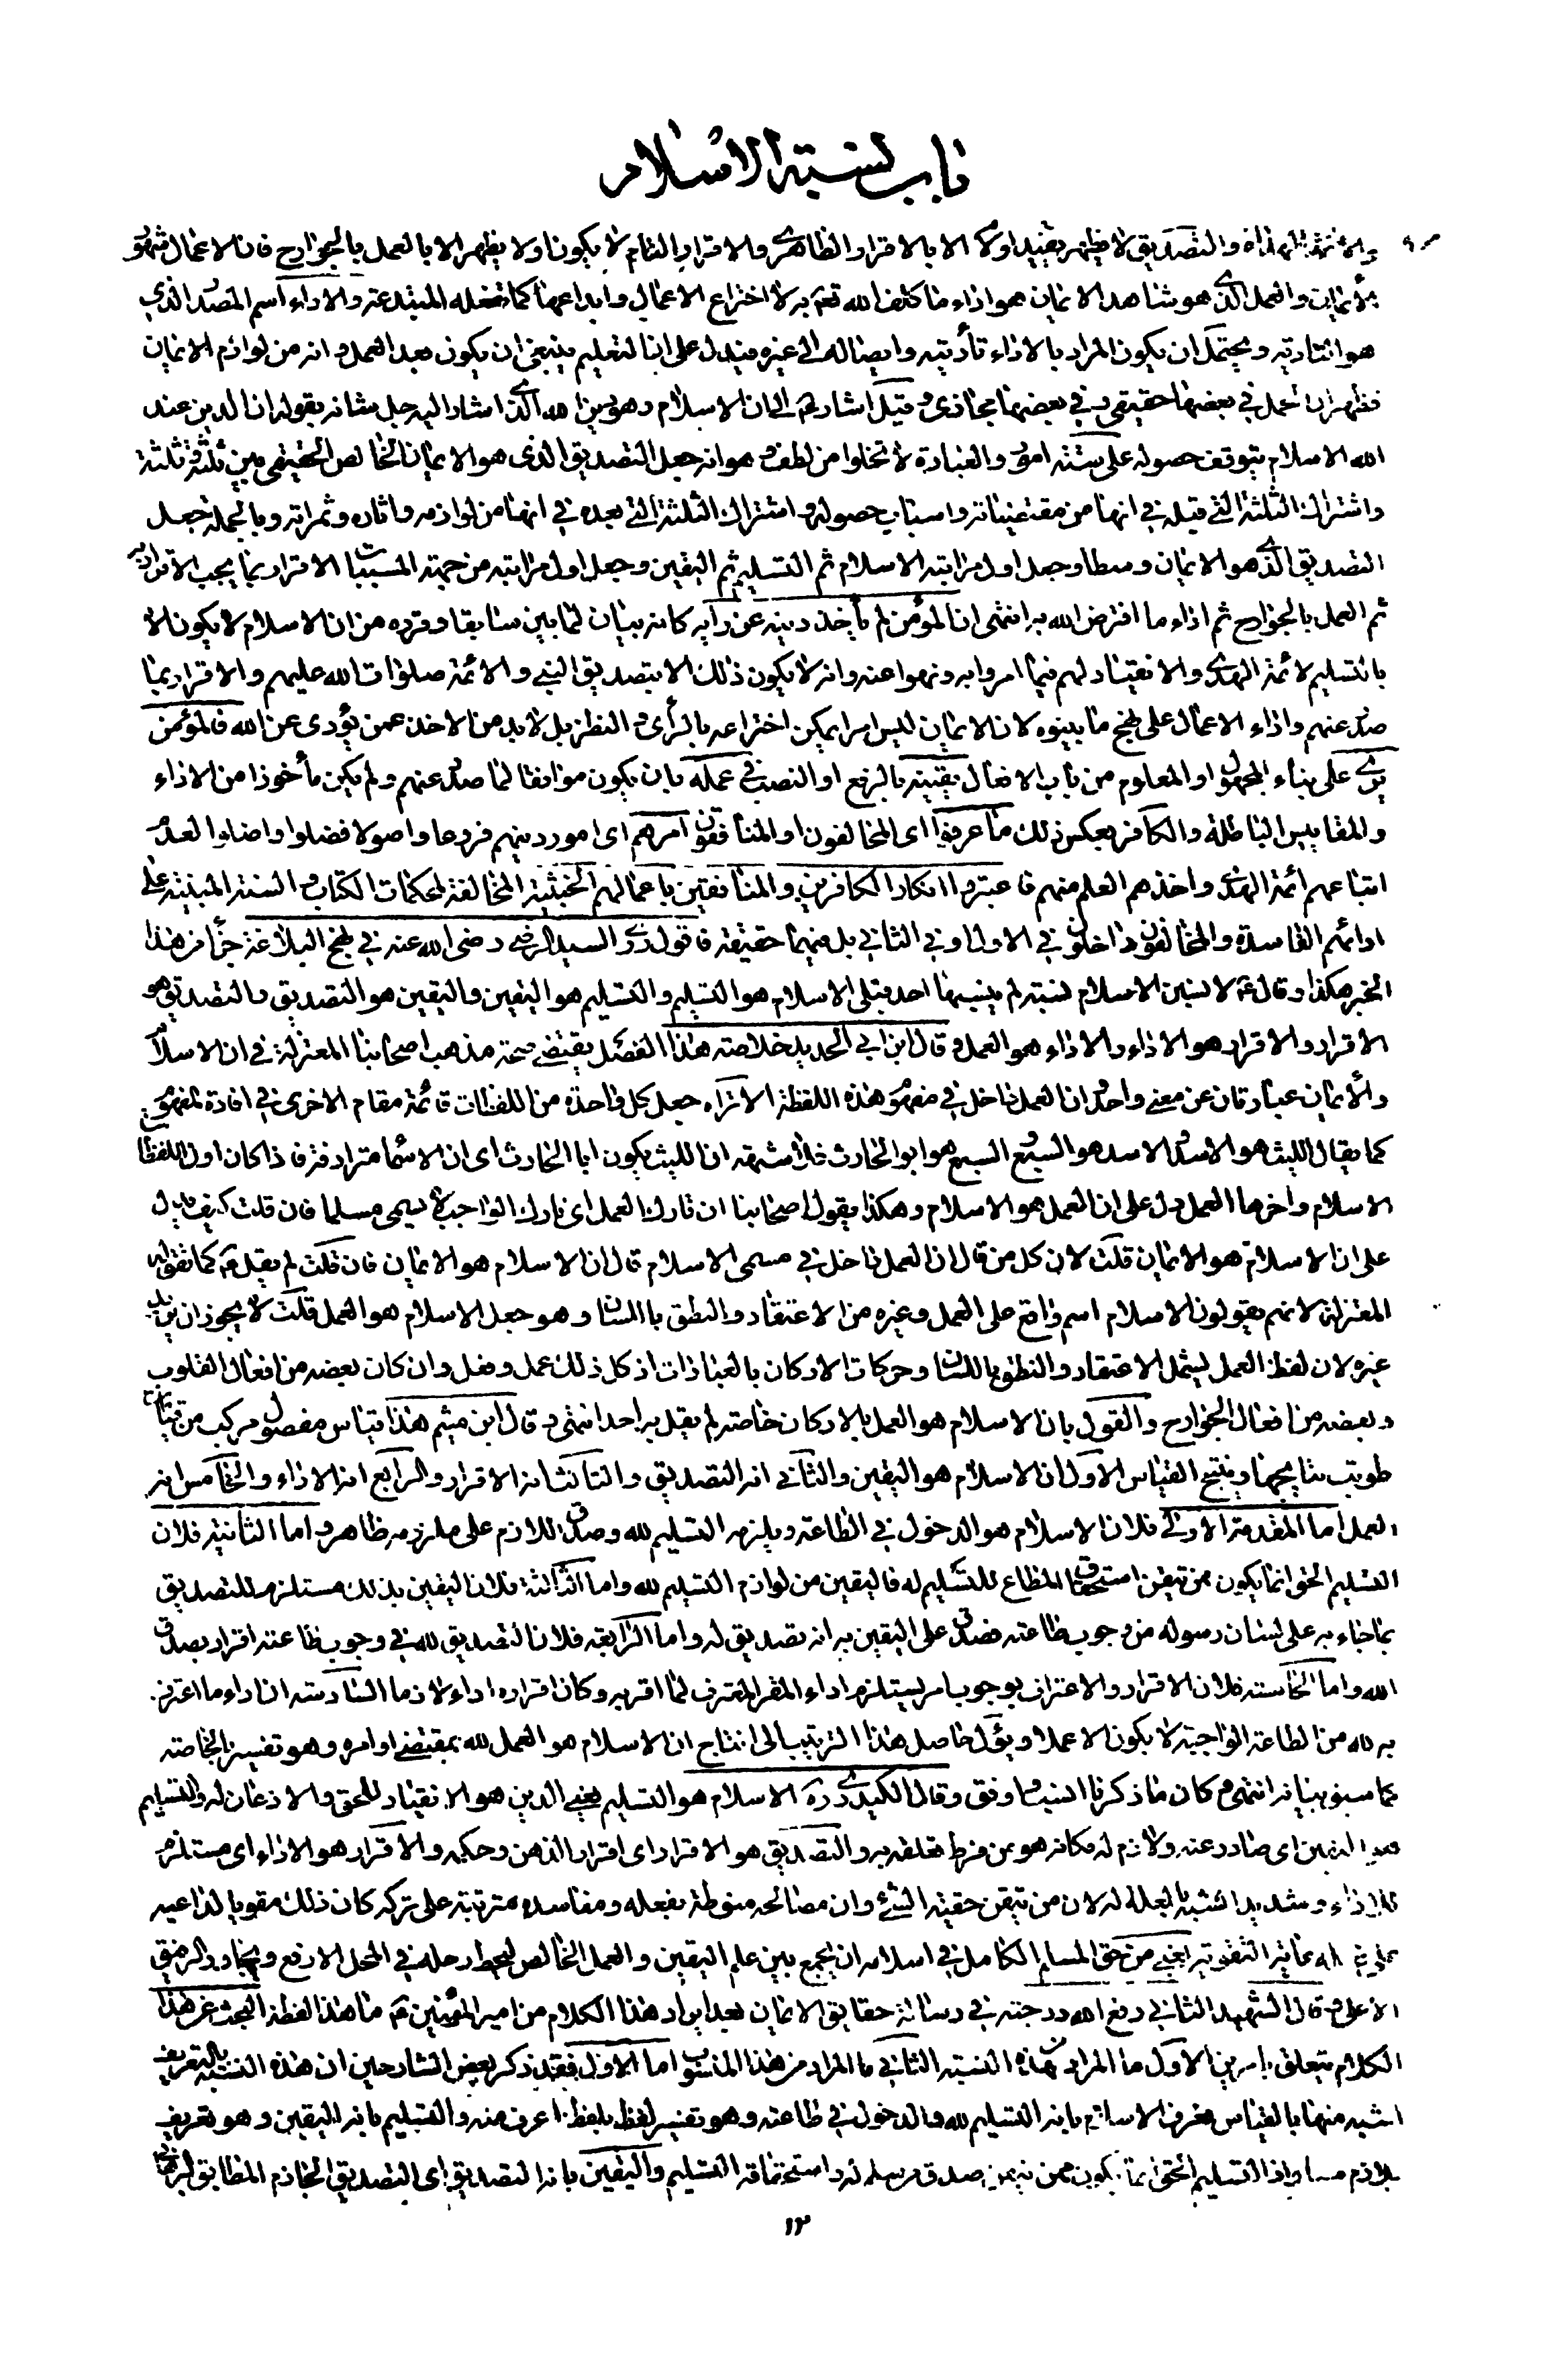 باب نسبة الاسلام
والتصديق لا يظهر يفيد اولا الا بالاقرار الظاهري والاقرار التام لا يكون ولا يظهر الا بالعمل بالجوارح فان الاعمال شهود
الايمان والعمل الذي هو شاهد الايمان هو اداء ما كلف الله تعالى به لا اختراع الاعمال وابداعها كما تفعله المبتدعة والاداء اسم المصدر الذي
هو التأدية ويحتمل ان يكون المراد بالاداء تأديته وايصاله الى غيره فيدل على ان التعليم ينبغي ان يكون بعد العمل وانه من لوازم الايمان
فظهر ان الحمل في بعضها حقيقي وفي بعضها مجازي وقيل اشار الى ان الاسلام وهو دين الله الذي اشار اليه جل شانه بقوله ان الدين عند
الله الاسلام يتوقف حصوله على ستة امور والعبارة لا تخلوا من لطف وهو انه جعل التصديق الذي هو الايمان الخالص الحقيقي بين ثلثة وثلثة
واشتراك الثلثة التي قبله في انها من مقتضياته واسباب حصوله واشتراك الثلثة التي بعده في انها من لوازمه واثاره وثمراته وبالجملة جعل
التصديق الذي هو الايمان وسطا وجعل اول مراتبه الاسلام ثم التسليم ثم اليقين وجعل اول مراتبه من جهة المسببات الاقرار بما يجب الاقرار به
ثم العمل بالجوارح ثم اداء ما افترض الله به انتهى ان المؤمن لم يأخذ دينه عن رأيه كانه بيان لما بين سابقا وقرره من ان الاسلام لا يكون الا
بالتسليم لائمة الهدى والانقياد لهم فيما امروا به ونهوا عنه وانه لا يكون ذلك الا بتصديق النبي والائمة صلوات الله عليهم والاقرار بما
صدر عنهم واداء الاعمال على نهج ما بينوه لان الايمان ليس امرا يمكن اختراعه بالرأي والنظر بل لا بد من الاخذ عمن يؤدى عن الله فالمؤمن
يرى على بناء المجهول او المعلوم من باب الافعال يقينه بالرفع او النصب في عمله بان يكون موافقا لما صدر عنهم ولم يكن مأخوذا من الاراء
والمقاييس الباطلة والكافر بعكس ذلك ما عرفوا اى المخالفون او المنافقون امرهم اى امور دينهم فروعا واصولا فضلوا واضلوا لعدم
اتباعهم ائمة الهدى واخذهم العلم منهم فاعتبروا انكار الكافرين والمنافقين باعمالهم الخبيثة المخالفة لمحكمات الكتاب والسنة المبنية على
ارائهم الفاسدة والمخالفون داخلون في الاول او في الثاني بل فيهما حقيقة فاقول روى السيد الرضي رضى الله عنه في نهج البلاغة جزأ من هذا
الخبر هكذا وقال ع لانسبن الاسلام نسبة لم ينسبها احد قبلى الاسلام هو التسليم والتسليم هو اليقين واليقين هو التصديق والتصديق هو
الاقرار والاقرار هو الاداء والاداء هو العمل وقال ابن ابي الحديد خلاصة هذا الفصل يقتضي صحة مذهب اصحابنا المعتزلة في ان الاسلام
والايمان عبارتان عن معنى واحد وان العمل داخل في مفهوم هذه اللفظة الا تراه جعل كل واحدة من اللفظات قائمة مقام الاخرى في افادة المفهوم
كما يقال الليث هو الاسد والاسد هو السبع والسبع هو ابو الحارث فلا شبهة ان الليث يكون ابا الحارث اى ان الاسماء مترادفة فاذا كان اول اللفظات
الاسلام واخرها العمل دل على ان العمل هو الاسلام وهكذا يقول اصحابنا ان تارك العمل اى تارك الواجب لا يسمى مسلما فان قلت كيف يدل
على ان الاسلام هو الايمان قلت لان كل من قال ان العمل داخل في مسمى الاسلام قال ان الاسلام هو الايمان فان قلت لم يقل ع كما تقوله
المعتزلة لانهم يقولون الاسلام اسم واقع على العمل وغيره من الاعتقاد والنطق باللسان وهو جعل الاسلام هو العمل قلت لا يجوز ان يريد
غيره لان لفظ العمل يشمل الاعتقاد والنطق باللسان وحركات الاركان بالعبادات اذ كل ذلك عمل وفعل وان كان بعضه من افعال القلوب
وبعضه من افعال الجوارح والقول بان الاسلام هو العمل بالاركان خاصة لم يقل به احد انتهى وقال ابن ميثم هذا قياس مفصول مركب من قياسات
طويت نتايجها وينتج القياس الاول ان الاسلام هو اليقين والثاني انه التصديق والثالث انه الاقرار والرابع انه الاداء والخامس انه
العمل اما المقدمة الاولى فلان الاسلام هو الدخول في الطاعة ويلزمه التسليم لله وصدق اللازم على ملزومه ظاهر واما الثانية فلان
التسليم الحق انما يكون ممن تيقن استحقاق المطاع للتسليم له فاليقين من لوازم التسليم لله واما الثالثة فلان اليقين بذلك مستلزم للتصديق
بما جاء به على لسان رسوله من وجوب طاعته فصدق على اليقين به انه تصديق له واما الرابعة فلان التصديق لله في وجوب طاعته اقرار بصدق
الله واما الخامسة فلان الاقرار والاعتراف بوجوب امر يستلزم اداء المقر المعترف لما اقر به وكان اقراره اداء لازما السادسة ان اداء ما اعترف
به لله من الطاعة الواجبة لا يكون الا عملا ويؤل حاصل هذا الترتيب الى انتاج ان الاسلام هو العمل لله بمقتضى اوامره وهو تفسير بالخاصة
كما سبق بيانه انتهى وكان ما ذكرنا انسب واوفق وقال الكيدرى ره الاسلام هو التسليم يعني الدين هو الانقياد للحق والاذعان له والتسليم
هو اليقين اى صادر عنه ولازم له فكانه هو من فرط تعلقه به والتصديق هو الاقرار اى اقرار الذهن وحكمه والاقرار هو الاداء اى مستلزم
للاداء وشديد الشبه بالعلة له لان من تيقن حقيقة الشئ وان مصالحه منوطة بفعله ومفاسده مترتبة على تركه كان ذلك مقويا لداعيه
على فعله غاية التقوية يعني من حق المسلم الكامل في اسلامه ان يجمع بين علم اليقين والعمل الخالص ليحط رحله في المحل الارفع ويجاور الرفيق
الاعلى وقال الشهيد الثاني رفع الله درجته في رسالة حقايق الايمان بعد ايراد هذا الكلام من امير المؤمنين ع ما هذا لفظه البحث عن هذا
الكلام يتعلق بامرين الاول ما المراد من هذه النسبة الثاني ما المراد من هذا المنسوب اما الاول فقد ذكر بعض الشارحين ان هذه النسبة بالتعريف
اشبه منها بالقياس فعرف الاسلام بانه التسليم لله والدخول في طاعته وهو تفسير لفظ بلفظ اعرف منه والتسليم بانه اليقين وهو تعريف
بلازم مساو اذ التسليم الحق انما يكون ممن تيقن صدق من سلم له واستحقاقه التسليم واليقين بانه التصديق اى التصديق الجازم المطابق
١٢